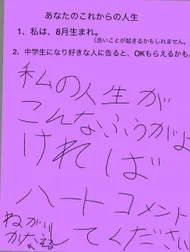 あなたのこれからの人生
1、私は、8月生まれ。
(良いことが起きるかもしれません。
2、中学生になり好きな人に告ると、OKもらえるかも。
私の人生が
こんなふうがよ
ければ
ハートコメント
てください
ねがい
かなえる